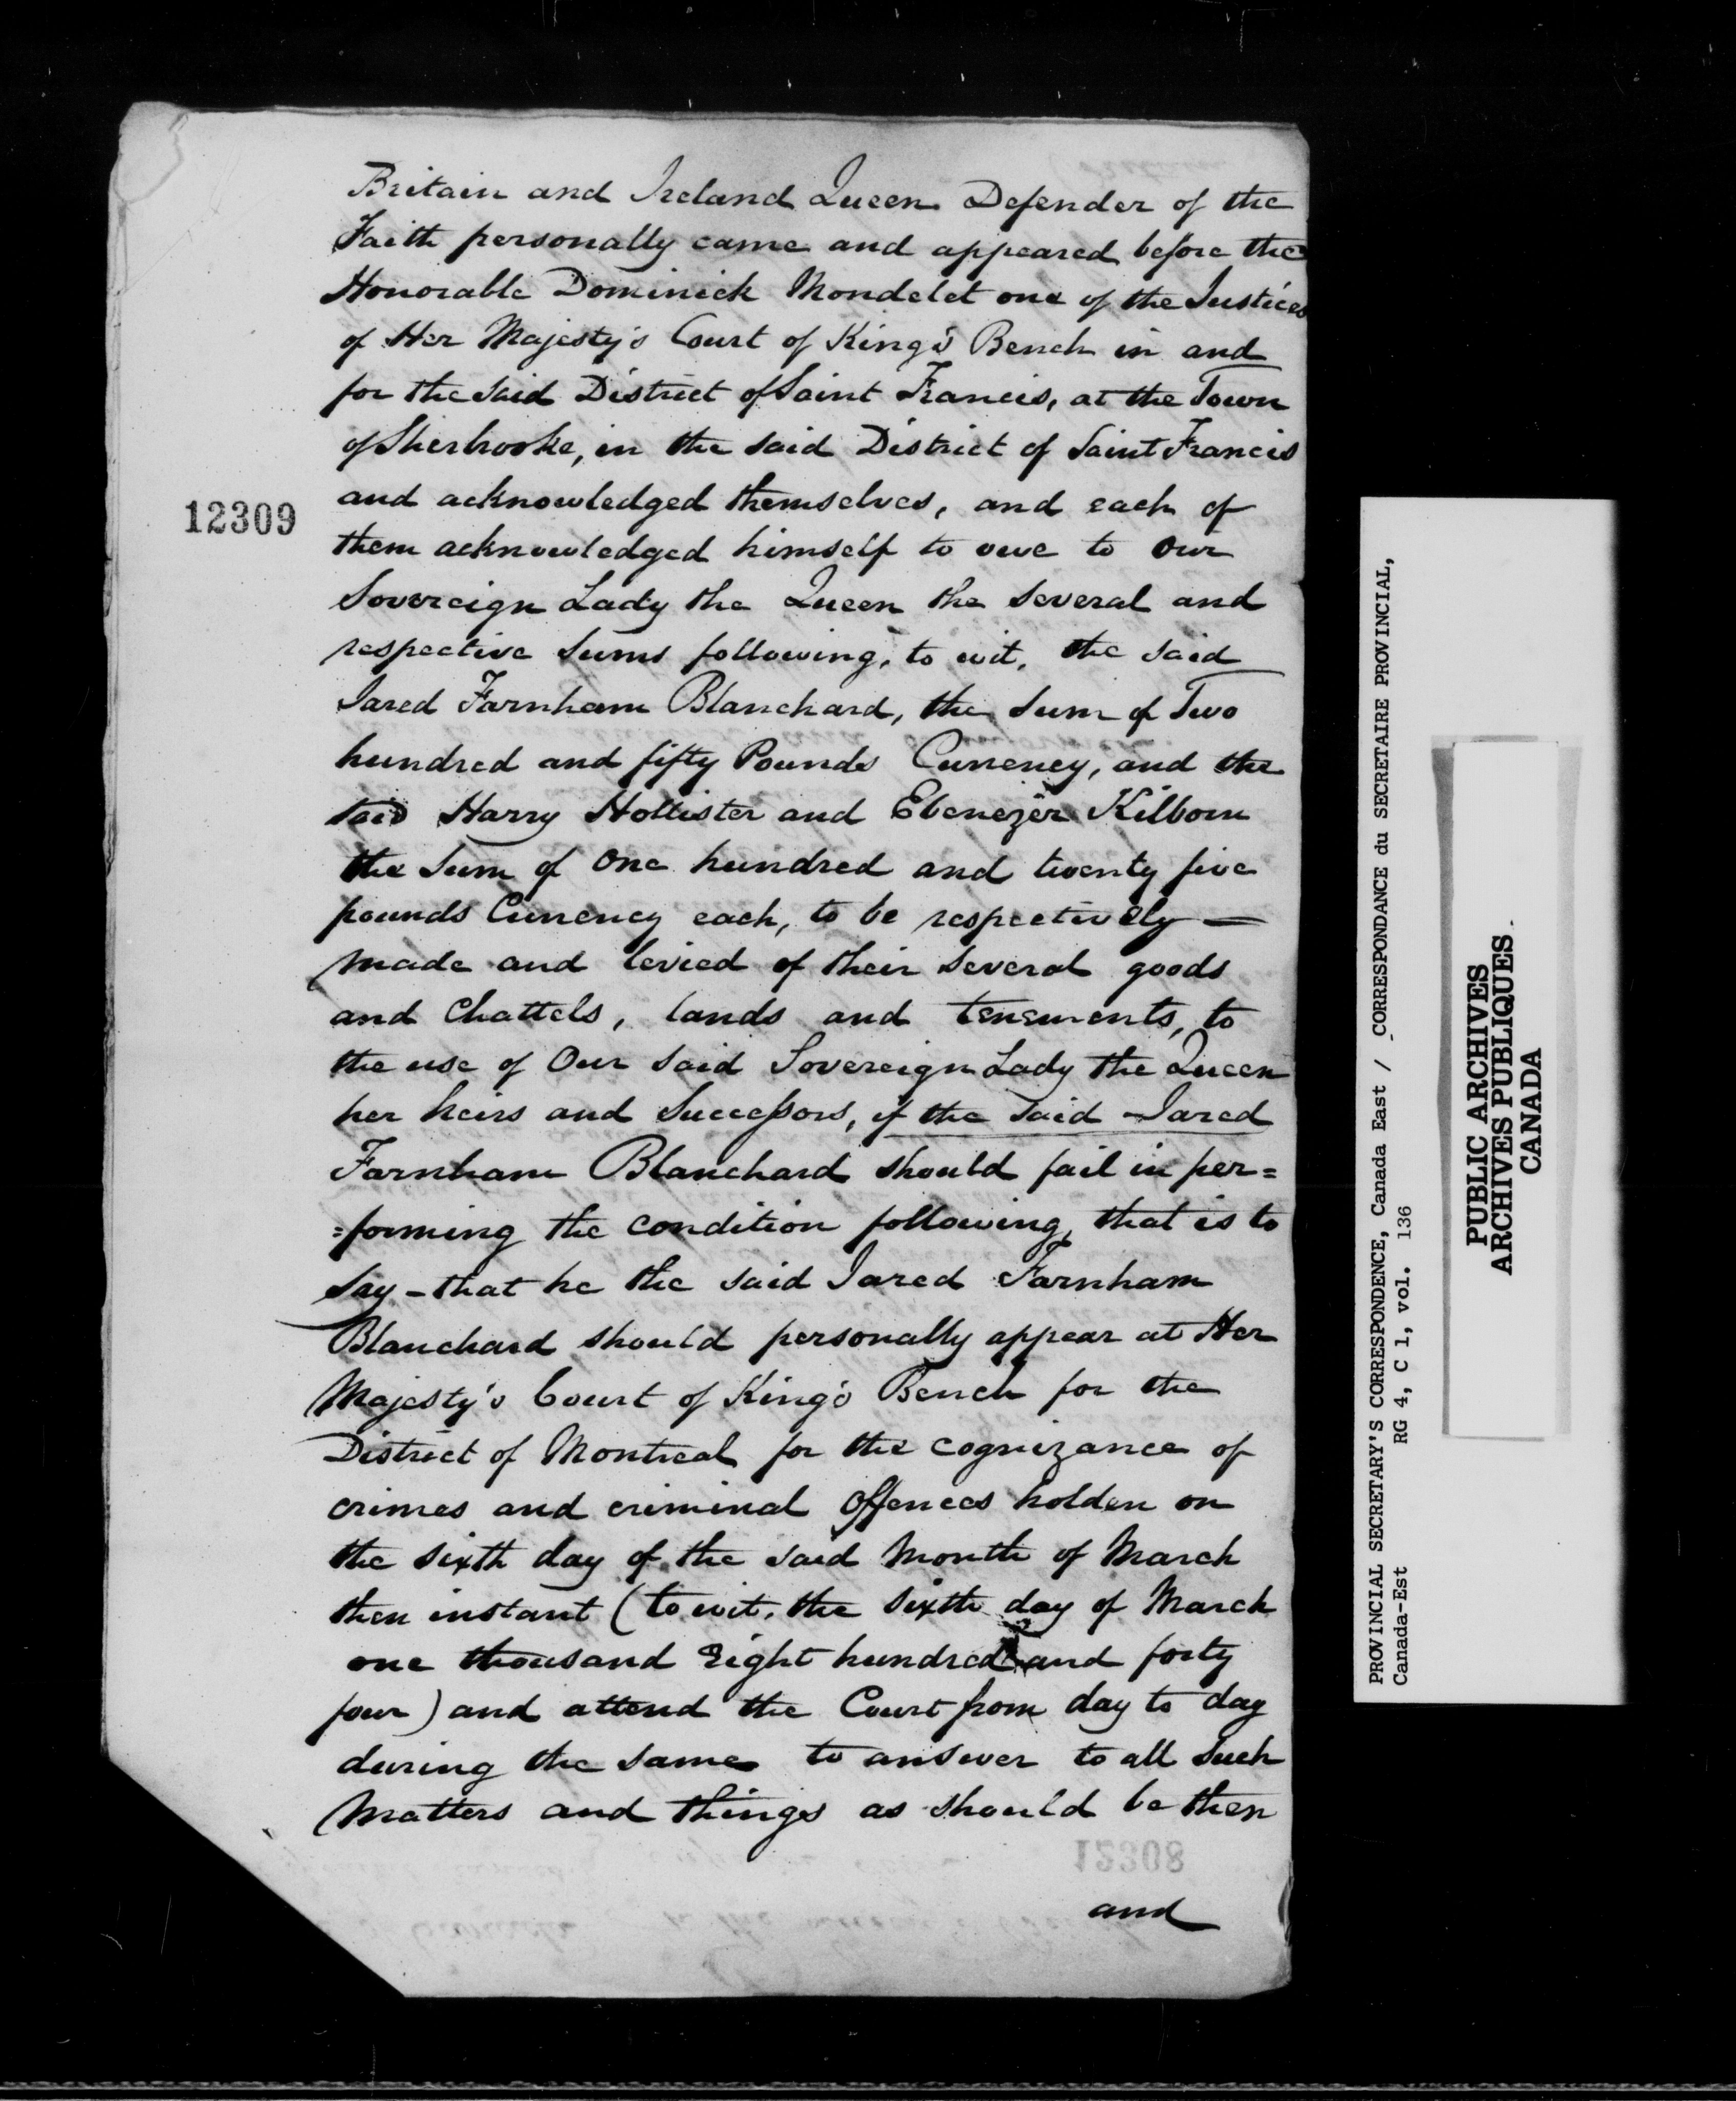 Britain and Ireland Queen Defender of the
Faith personally came and appeared before the
Honorable Dominick Mondelet one of the Justices
of Her Majesty's Court of King's Bench in and
for the said District of Saint Francis, at the Town
of Sherbrooke, in the said District of Saint Francis
12309
and acknowledged themselves, and each of
them acknowledged himself to owe to Our
Sovereign Lady the Queen the several and
respective sums following, to wit, the said
Jared Farnham Blanchard, the sum of Two
hundred and fifty Pounds Currency, and the
said Harry Hollister and Ebenezer Kilborn
the sum of One hundred and twenty five
pounds Currency each, to be respectively —
made and levied of their several goods
and Chattels, lands and tenements, to
the use of Our said Sovereign Lady the Queen
her heirs and Successors, if the said Jared
Farnham Blanchard should fail in per=
=forming the condition following, that is to
say - that he the said Jared Farnham
Blanchard should personally appear at Her
Majesty's Court of King's Bench for the
District of Montreal for the cognizance of
crimes and criminal offences holden on
the sixth day of the said Month of March
then instant (to wit, the sixth day of March
one thousand Eight hundred and forty
four) and attend the Court from day to day
during the same to answer to all such
Matters and things as should be then
12308
and
PROVINCIAL SECRETARY'S CORRESPONDENCE, Canada East / CORRESPONDANCE du SECRETAIRE PROVINCIAL,
Canada-Est RG 4, C 1, vol. 136
PUBLIC ARCHIVES
ARCHIVES PUBLIQUES
CANADA